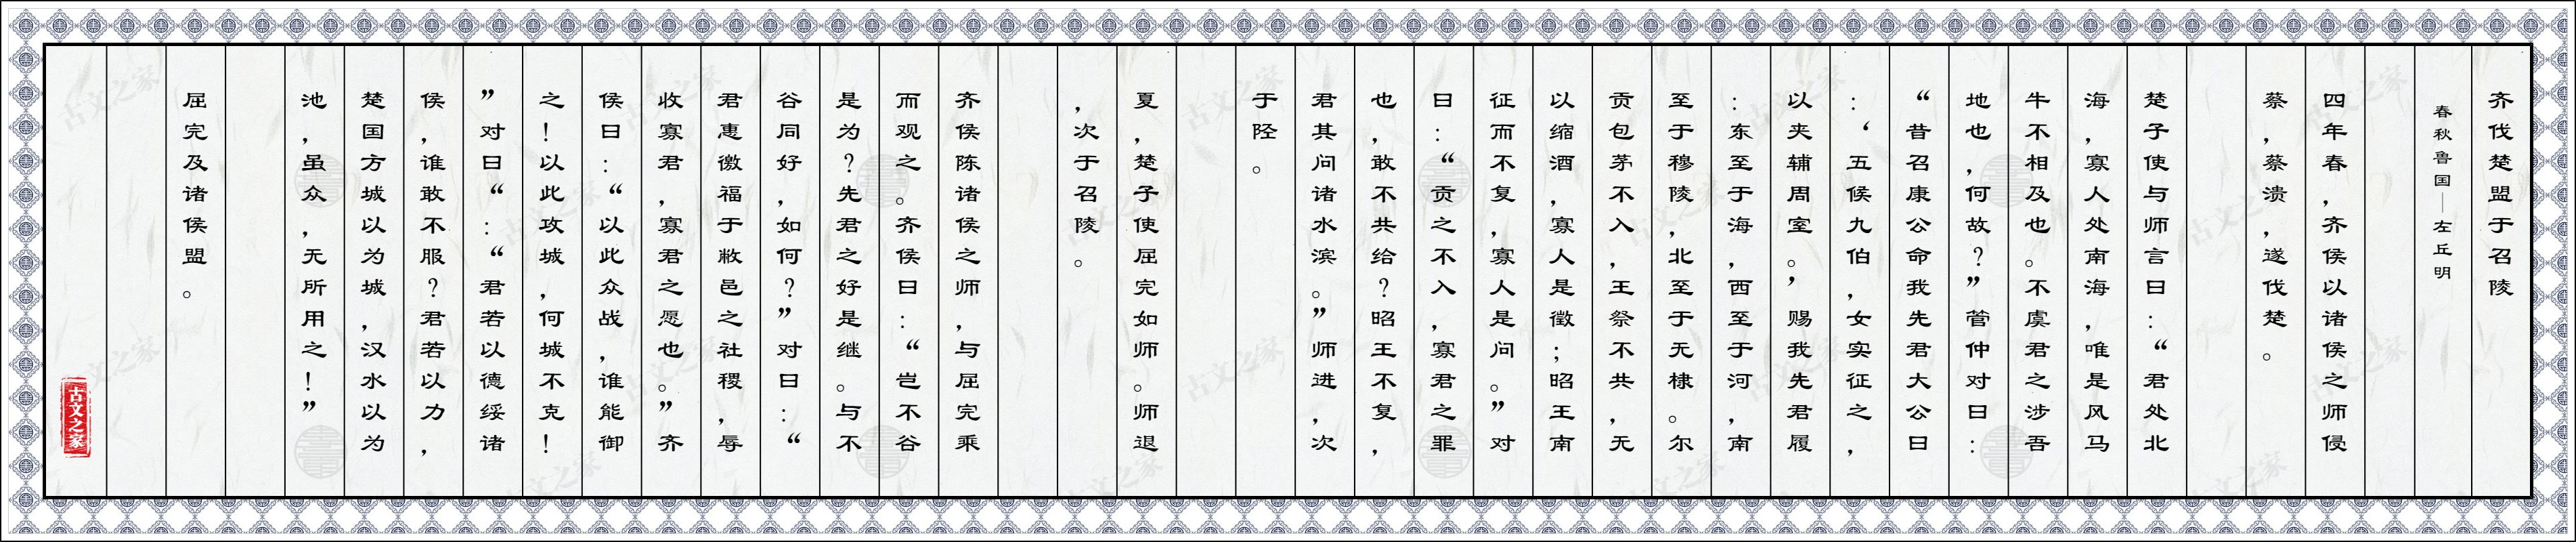 齐伐楚盟于召陵
春秋鲁国—左丘明
四年春，齐侯以诸侯之师侵
蔡，蔡溃，遂伐楚。
楚子使与师言曰：“君处北
海，寡人处南海，唯是风马
牛不相及也。不虞君之涉吾
地也，何故？”管仲对曰：
“昔召康公命我先君大公曰
：‘五侯九伯，女实征之，
以夹辅周室。’赐我先君履
：东至于海，西至于河，南
至于穆陵，北至于无棣。尔
贡包茅不入，王祭不共，无
以缩酒，寡人是徵；昭王南
征而不复，寡人是问。”对
曰：“贡之不入，寡君之罪
也，敢不共给？昭王不复，
君其问诸水滨。”师进，次
于陉。
夏，楚子使屈完如师。师退
，次于召陵。
齐侯陈诸侯之师，与屈完乘
而观之。齐侯曰：“岂不谷
是为？先君之好是继。与不
谷同好，如何？”对曰：“
君惠徼福于敝邑之社稷，辱
收寡君，寡君之愿也。”齐
侯曰：“以此众战，谁能御
之！以此攻城，何城不克！
”对曰“：“君若以德绥诸
侯，谁敢不服？君若以力，
楚国方城以为城，汉水以为
池，虽众，无所用之！”
屈完及诸侯盟。
古文之家